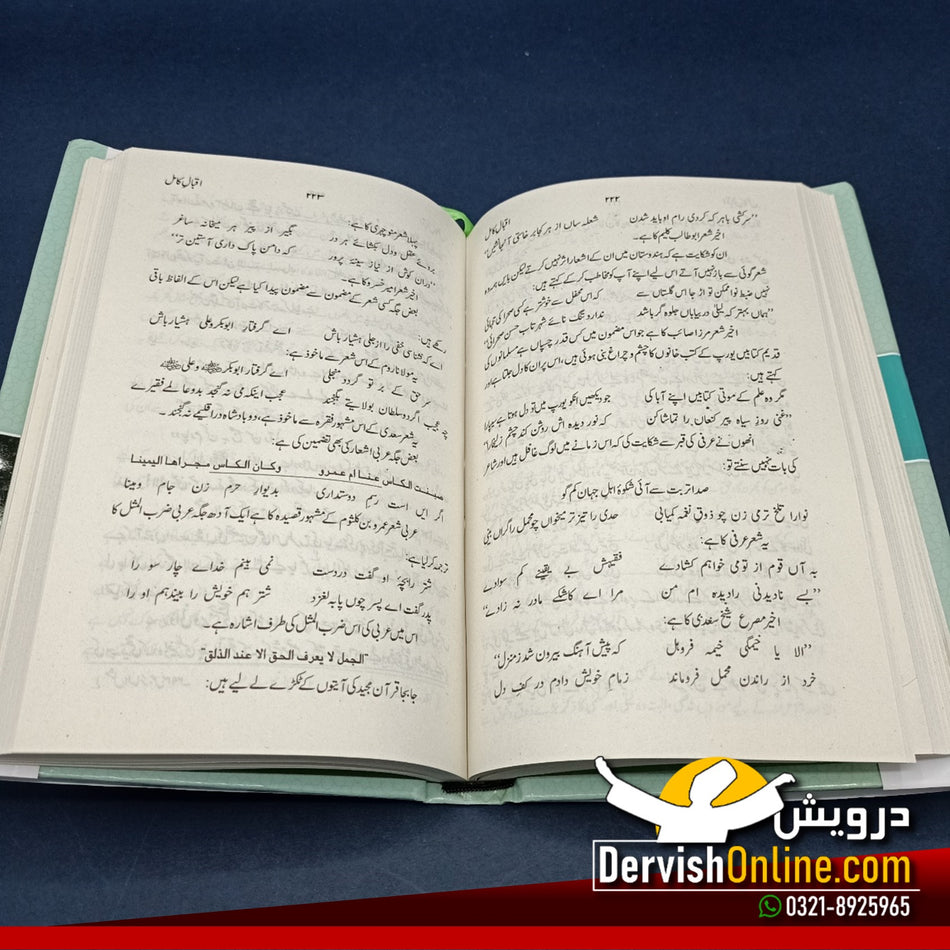 ۲۲۲
اقبال کامل
"سرکشی باہر کہ کردی رام او باید شدن شعلہ ساں از ہر کجا برخاستی آنجا نشیں"
اخیر شعر ابوطالب کلیم کا ہے۔
ان کو شکایت ہے کہ ہندوستان میں ان کے اشعار اثر نہیں کرتے لیکن بایں ہمہ وہ
شعر گوئی سے باز نہیں آتے اس لیے اپنے آپ کو مخاطب کر کے کہتے ہیں:
نہیں ضبط نوا ممکن تو اڑ جا اس گلستاں سے کہ اس محفل سے خوشتر ہے کسی صحرا کی تنہائی
"ہماں بہتر کہ لیلیٰ در بیاباں جلوہ گر باشد ندارد تنگ نائے شہر تاب حسن صحرائی"
اخیر شعر مرزا صائب کا ہے جو اس مضمون میں کس قدر چسپاں ہے مسلمانوں کی
قدیم کتابیں یورپ کے کتب خانوں کا چشم و چراغ بنی ہوئی ہیں، اس پر ان کا دل جلتا ہے اور
کہتے ہیں:
مگر وہ علم کے موتی کتابیں اپنے آبا کی جو دیکھیں انکو یورپ میں تو دل ہوتا ہے سیپارا
"غنی روز سیاہ پیر کنعاں را تماشا کن کہ نور دیدہ اش روشن کند چشم زلیخا را"
انھوں نے عرفی کی قبر سے شکایت کی کہ اس زمانے میں لوگ غافل ہیں اور شاعر
کی بات نہیں سنتے تو:
صدا تربت سے آئی شکوۂ اہل جہاں کم گو
نوارا تلخ ترمی زن چو ذوق نغمہ کمیابی حدی را تیز ترمیخواں چو محمل را گراں بینی
یہ شعر عرفی کا ہے:
بہ آں قوم از تو می خواہم کشادے فقیہش بے یقینے کم سوادے
"بسے نادیدنی را دیدہ ام من مرا اے کاشکے مادر نہ زادے"
اخیر مصرع شیخ سعدی کا ہے:
"الا یا خیمگی خیمہ فروہل کہ پیش آہنگ بیروں شد ز منزل"
خرد از راندن محمل فروماند زمام خویش دادم در کف دل
۲۲۳
اقبال کامل
پہلا شعر منوچہری کا ہے:
بروئے عقل و دل بکشائے ہر در بگیر از پیر ہر میخانہ ساغر
"دراں کوش از نیاز سینۂ پرور کہ دامن پاک داری آستین تر"
اخیر شعر امیر خسرو کا ہے۔
بعض جگہ کسی شعر کے مضمون سے مضمون پیدا کیا ہے لیکن اس کے الفاظ باقی
رکھے ہیں:
اے کہ نشناسی خفی را از جلی ہشیار باش اے گرفتار ابوبکرؓ و علیؓ ہشیار باش
یہ مولانا روم کے اس شعر سے ماخوذ ہے:
سر حق کے بر تو گردد منجلی اے گرفتار ابوبکر و علی
چہ عجب اگر دو سلطان بولایتے نگنجند عجب اینکہ می نہ گنجد بدو عالمے فقیرے
یہ شعر سعدی کے اس مشہور فقرہ سے ماخوذ ہے، دو بادشاہ در اقلیمے نہ گنجند۔
بعض جگہ عربی اشعار کی بھی تضمین کی ہے:
صبنت الکاس عنا ام عمرو وکان الکاس مجراھا الیمینا
اگر ایں است رسم دوستداری بدیوار حرم زن جام و مینا
عربی شعر عمرو بن کلثوم کے مشہور قصیدہ کا ہے ایک آدھ جگہ عربی ضرب المثل کا
ترجمہ کر لیا ہے:
شتر را بچۂ او گفت در دشت نمی بینم خدائے چار سو را
پدر گفت اے پسر چوں پا بہ لغزد شتر ہم خویش را بیند ہم او را
اس میں عربی کی اس ضرب المثل کی طرف اشارہ ہے۔
"الجمل لا یعرف الحق الا عند الذلق"
جابجا قرآن مجید کی آیتوں کے ٹکڑے لے لیے ہیں:
درویش
DervishOnline.com
0321-8925965